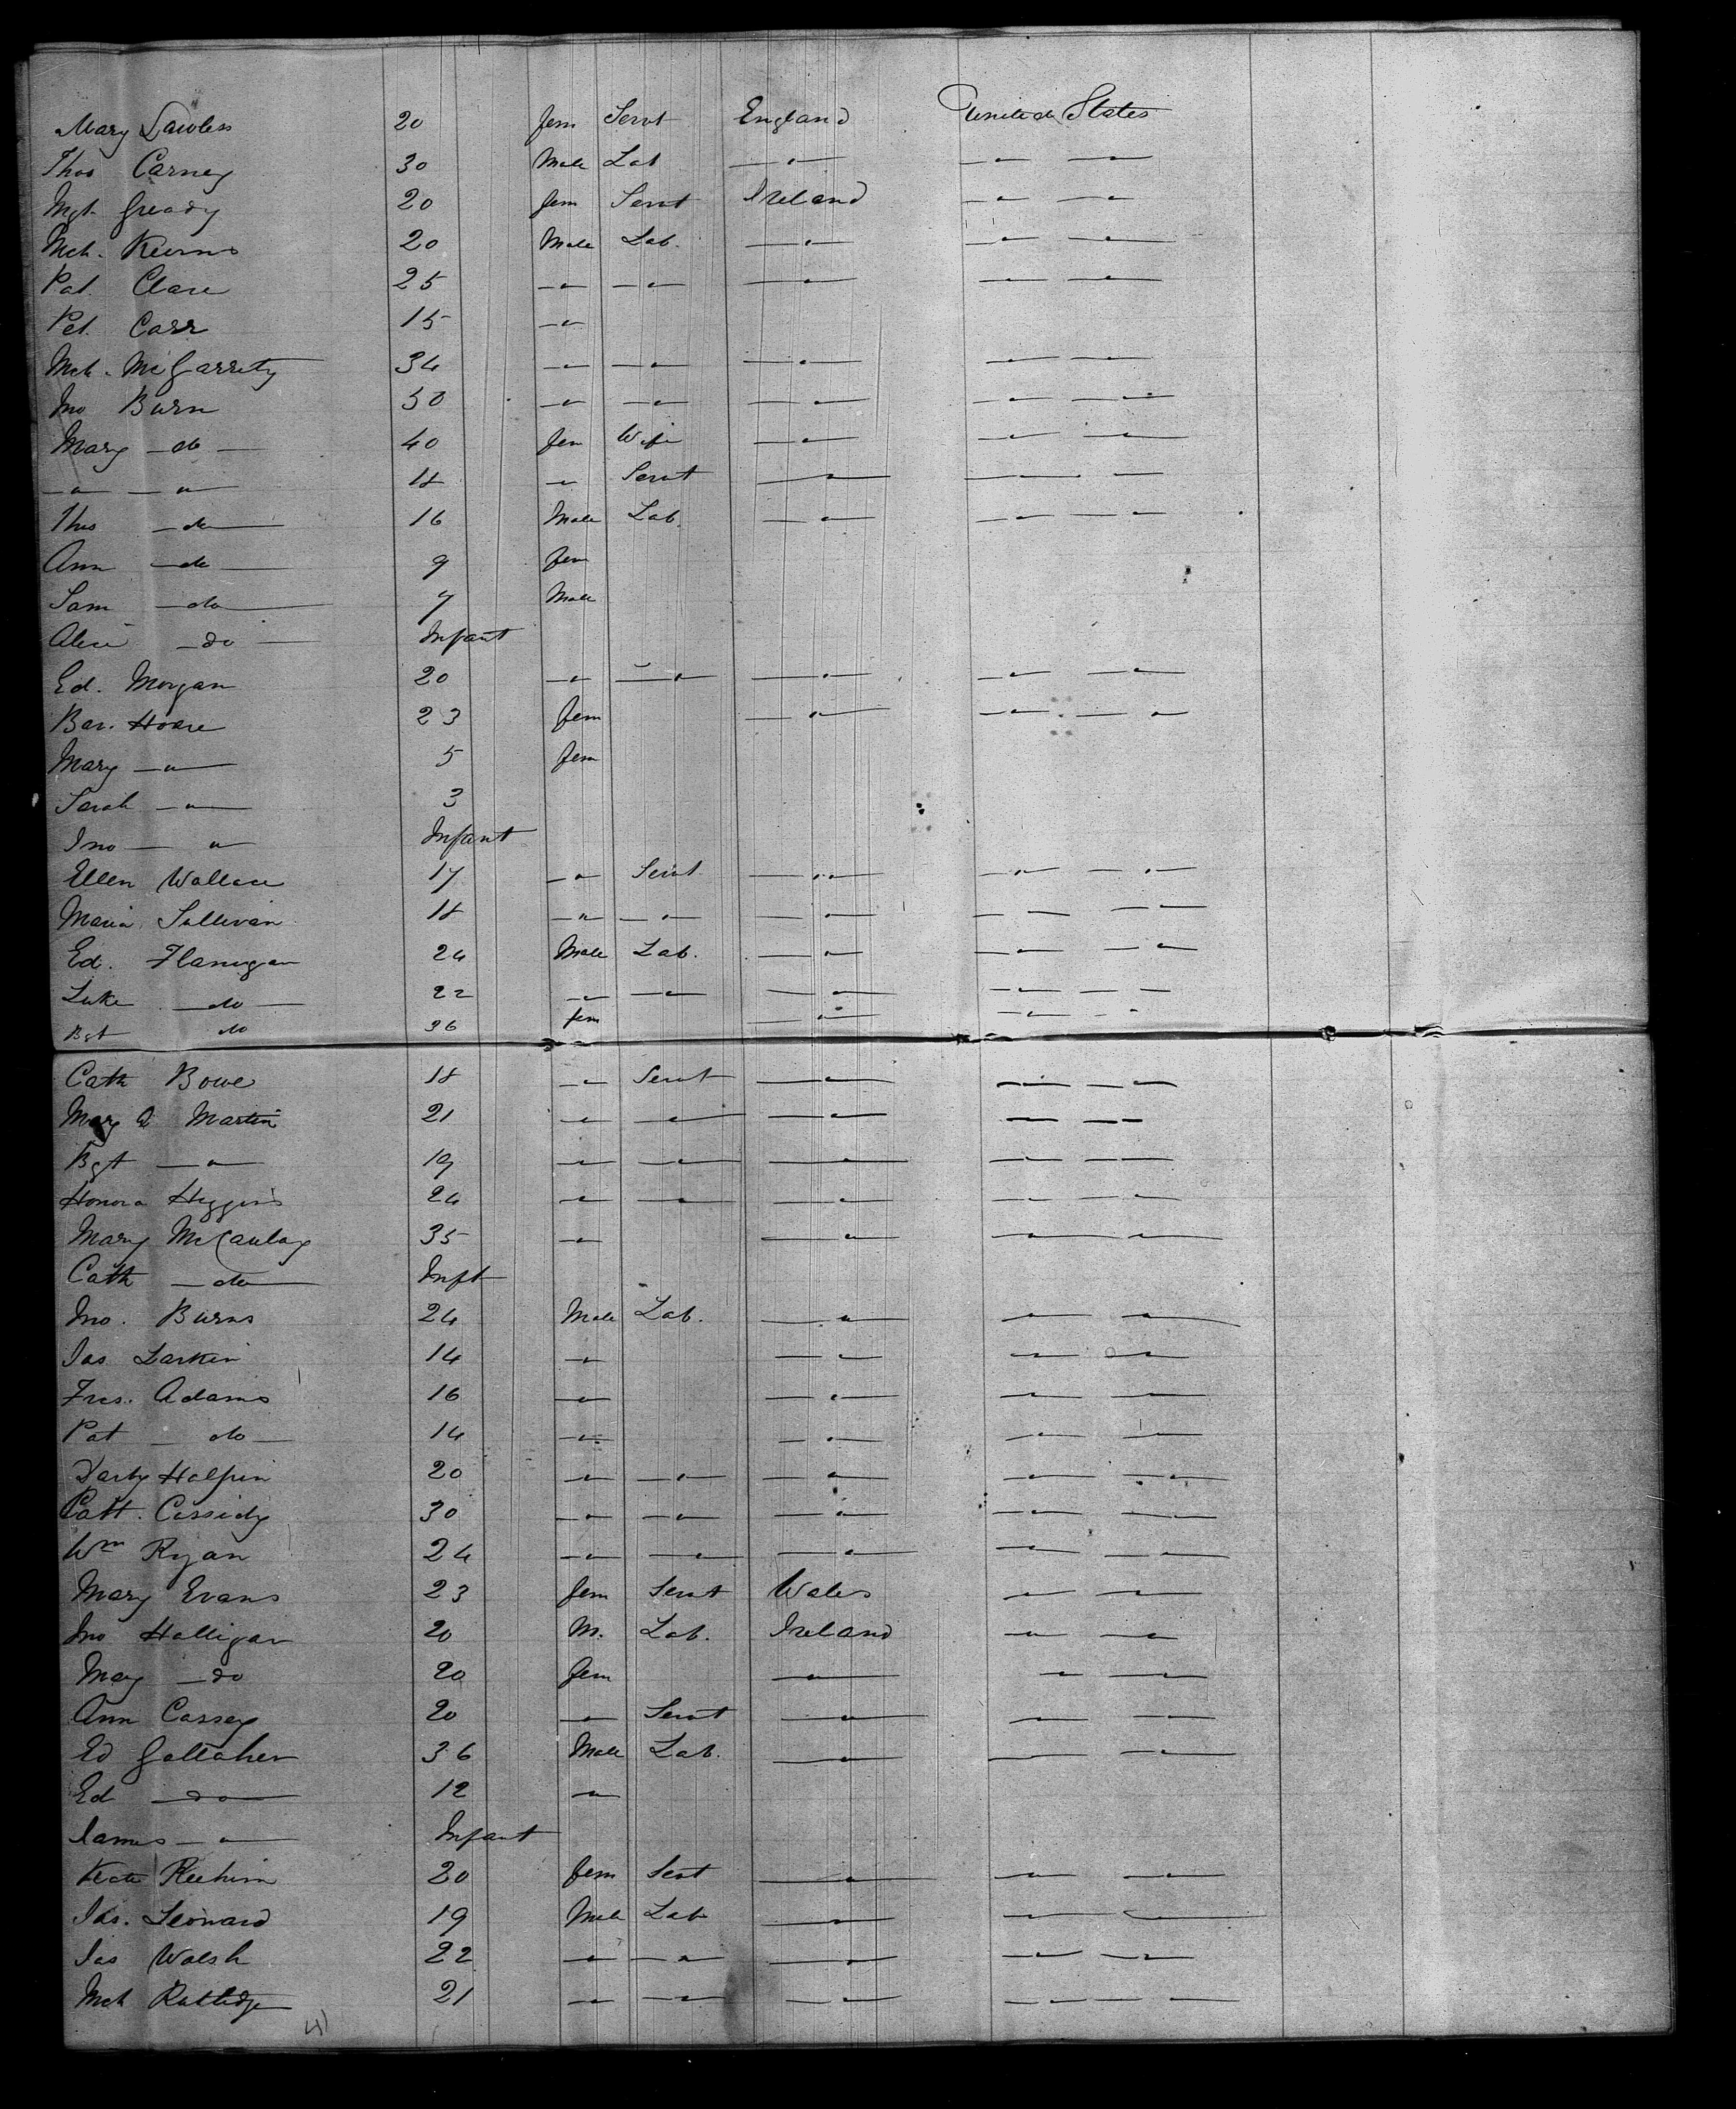 Mary Lawless 20 fem Servt England United States
Thos Carney 30 Male Lab —"— —"— —"—
Mgt. Gready 20 fem Servt Ireland —"— —"—
Mch. Keirns 20 Male Lab. —"— —"— —"—
Pat. Clare 25 —"— —"— —"— —"— —"—
Pet. Carr 15 —"—
Mch. McGarrety 34 —"— —"— —"— —"— —"—
Jno Burn 50 —"— —"— —"— —"— —"—
Mary —do— 40 fem Wife —"— —"— —"—
—"— —"— 18 —"— Servt —"— —"— —"—
Thos —do— 16 Male Lab. —"— —"— —"—
Ann —do— 9 fem
Sam —do— 7 Male
Alice —do— Infant
Ed. Morgan 20 —"— —"— —"— —"— —"—
Bar. Hoare 23 fem —"— —"— —"—
Mary —"— 5 fem
Sarah —"— 3
Jno —"— Infant
Ellen Wallace 17 —"— Servt. —"— —"— —"—
Maria Sullivan 18 —"— —"— —"— —"— —"—
Ed. Flanigan 24 Male Lab. —"— —"— —"—
Luke —do— 22 —"— —"— —"— —"— —"—
Bgt do 26 fem —"— —"— —"—
Cath Bowe 18 —"— Servt —"— —"— —"—
Mary A Martin 21 —"— —"— —"— —"— —"—
Bgt —"— 19 —"— —"— —"— —"— —"—
Honora Higgins 24 —"— —"— —"— —"— —"—
Mary McCaulay 35 —"— —"— —"— —"—
Cath —do— Inft
Jno. Burns 24 Male Lab. —"— —"— —"—
Jas Larkin 14 —"— —"— —"— —"—
Fras. Adams 16 —"— —"— —"— —"—
Pat —do— 14 —"— —"— —"— —"—
Darby Halpin 20 —"— —"— —"— —"— —"—
Patt. Cassidy 30 —"— —"— —"— —"— —"—
Wm Ryan 24 —"— —"— —"— —"— —"—
Mary Evans 23 fem Servt Wales —"— —"—
Jno Halligan 20 M. Lab. Ireland —"— —"—
Mary —do 20 fem —"— —"— —"—
Ann Cassey 20 —"— Servt —"— —"— —"—
Ed Gallaher 36 Male Lab. —"— —"— —"—
Ed —do— 12 —"—
James —"— Infant
Kate 20 fem Servt —"— —"— —"—
Jas. Leonard 19 Male Lab —"— —"— —"—
Jas Walsh 22 —"— —"— —"— —"— —"—
Mch Rutledge 21 —"— —"— —"— —"— —"—